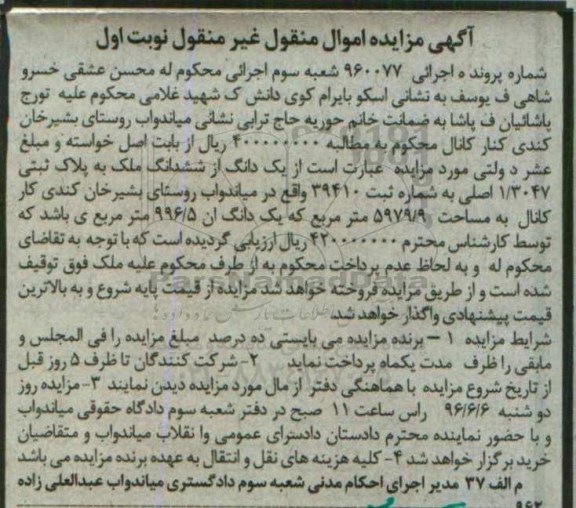 آگهی مزایده اموال منقول غیر منقول نوبت اول
شماره پرونده اجرائی ۹۶۰۰۷۷ شعبه سوم اجرائی محکوم له محسن عشقی خسرو
شاهی ف یوسف به نشانی اسکو بایرام کوی دانش ک شهید غلامی محکوم علیه تورج
پاشائیان ف پاشا به ضمانت خانم حوریه حاج ترابی نشانی میاندواب روستای بشیرخان
کندی کنار کانال محکوم به مطالبه ۴۰۰۰۰۰۰۰۰ ریال از بابت اصل خواسته و مبلغ
عشر د ولتی مورد مزایده عبارت است از یک دانگ از ششدانگ ملک به پلاک ثبتی
۱/۳۰۴۷ اصلی به شماره ثبت ۳۹۴۱۰ واقع در میاندواب روستای بشیرخان کندی کار
کانال به مساحت ۵۹۷۹/۹ متر مربع که یک دانگ ان ۹۹۶/۵ متر مربع ی باشد که
توسط کارشناس محترم ۴۲۰۰۰۰۰۰۰ ریال ارزیابی گردیده است که با توجه به تقاضای
محکوم له و به لحاظ عدم پرداخت محکوم به از طرف محکوم علیه ملک فوق توقیف
شده است و از طریق مزایده فروخته خواهد شد مزایده از قیمت پایه شروع و به بالاترین
قیمت پیشنهادی واگذار خواهد شد
شرایط مزایده ۱ – برنده مزایده می بایستی ده درصد مبلغ مزایده را فی المجلس و
مابقی را ظرف مدت یکماه پرداخت نماید ۲- شرکت کنندگان تا ظرف ۵ روز قبل
از تاریخ شروع مزایده با هماهنگی دفتر از مال مورد مزایده دیدن نمایند ۳- مزایده روز
دو شنبه ۹۶/۶/۶ راس ساعت ۱۱ صبح در دفتر شعبه سوم دادگاه حقوقی میاندواب
و با حضور نماینده محترم دادستان دادسرای عمومی وا نقلاب میاندواب و متقاضیان
خرید برگزار خواهد شد ۴- کلیه هزینه های نقل و انتقال به عهده برنده مزایده می باشد
م الف ۳۷ مدیر اجرای احکام مدنی شعبه سوم دادگستری میاندواب عبدالعلی زاده